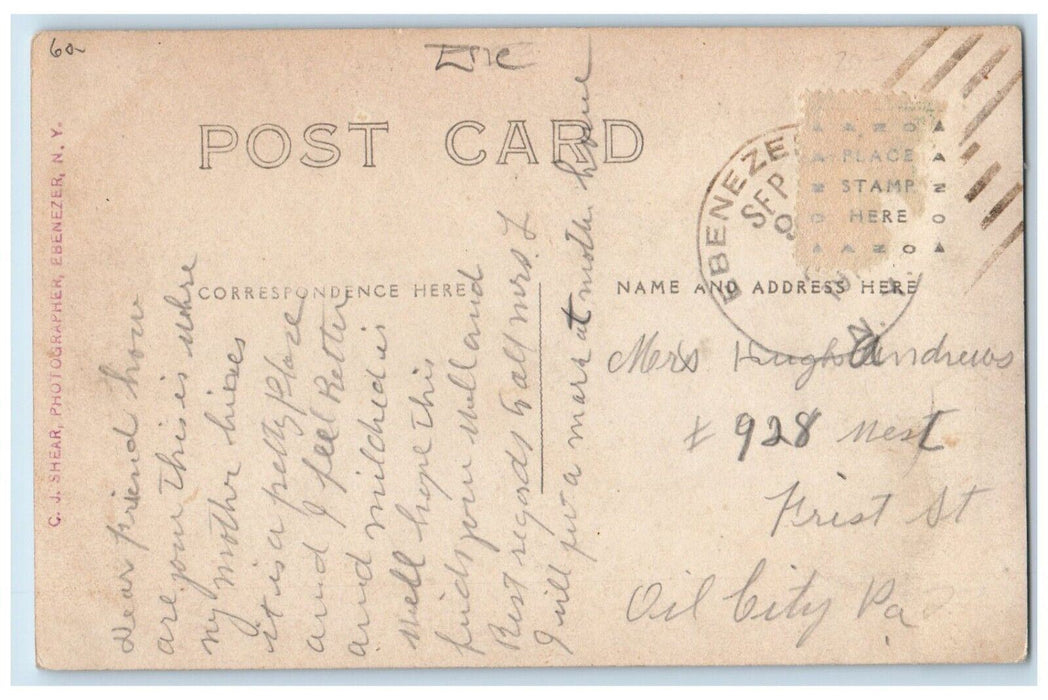 60
Eric
POST CARD
C. J. SHEAR, PHOTOGRAPHER, EBENEZER, N. Y.
CORRESPONDENCE HERE
NAME AND ADDRESS HERE
EBENEZER
SEP
N.
AZO
PLACE
STAMP
HERE
AZO
Dear Friend how
are you this is whre
my mothr lives
it is a petty Place
and I feel Better
and mildred is
Well hope this
finds you Well and
Best regards to all mrs. L
I will put a mark at mothe home
Mrs Hugh Andrews
# 928 West
Frist St
Oil City Pa